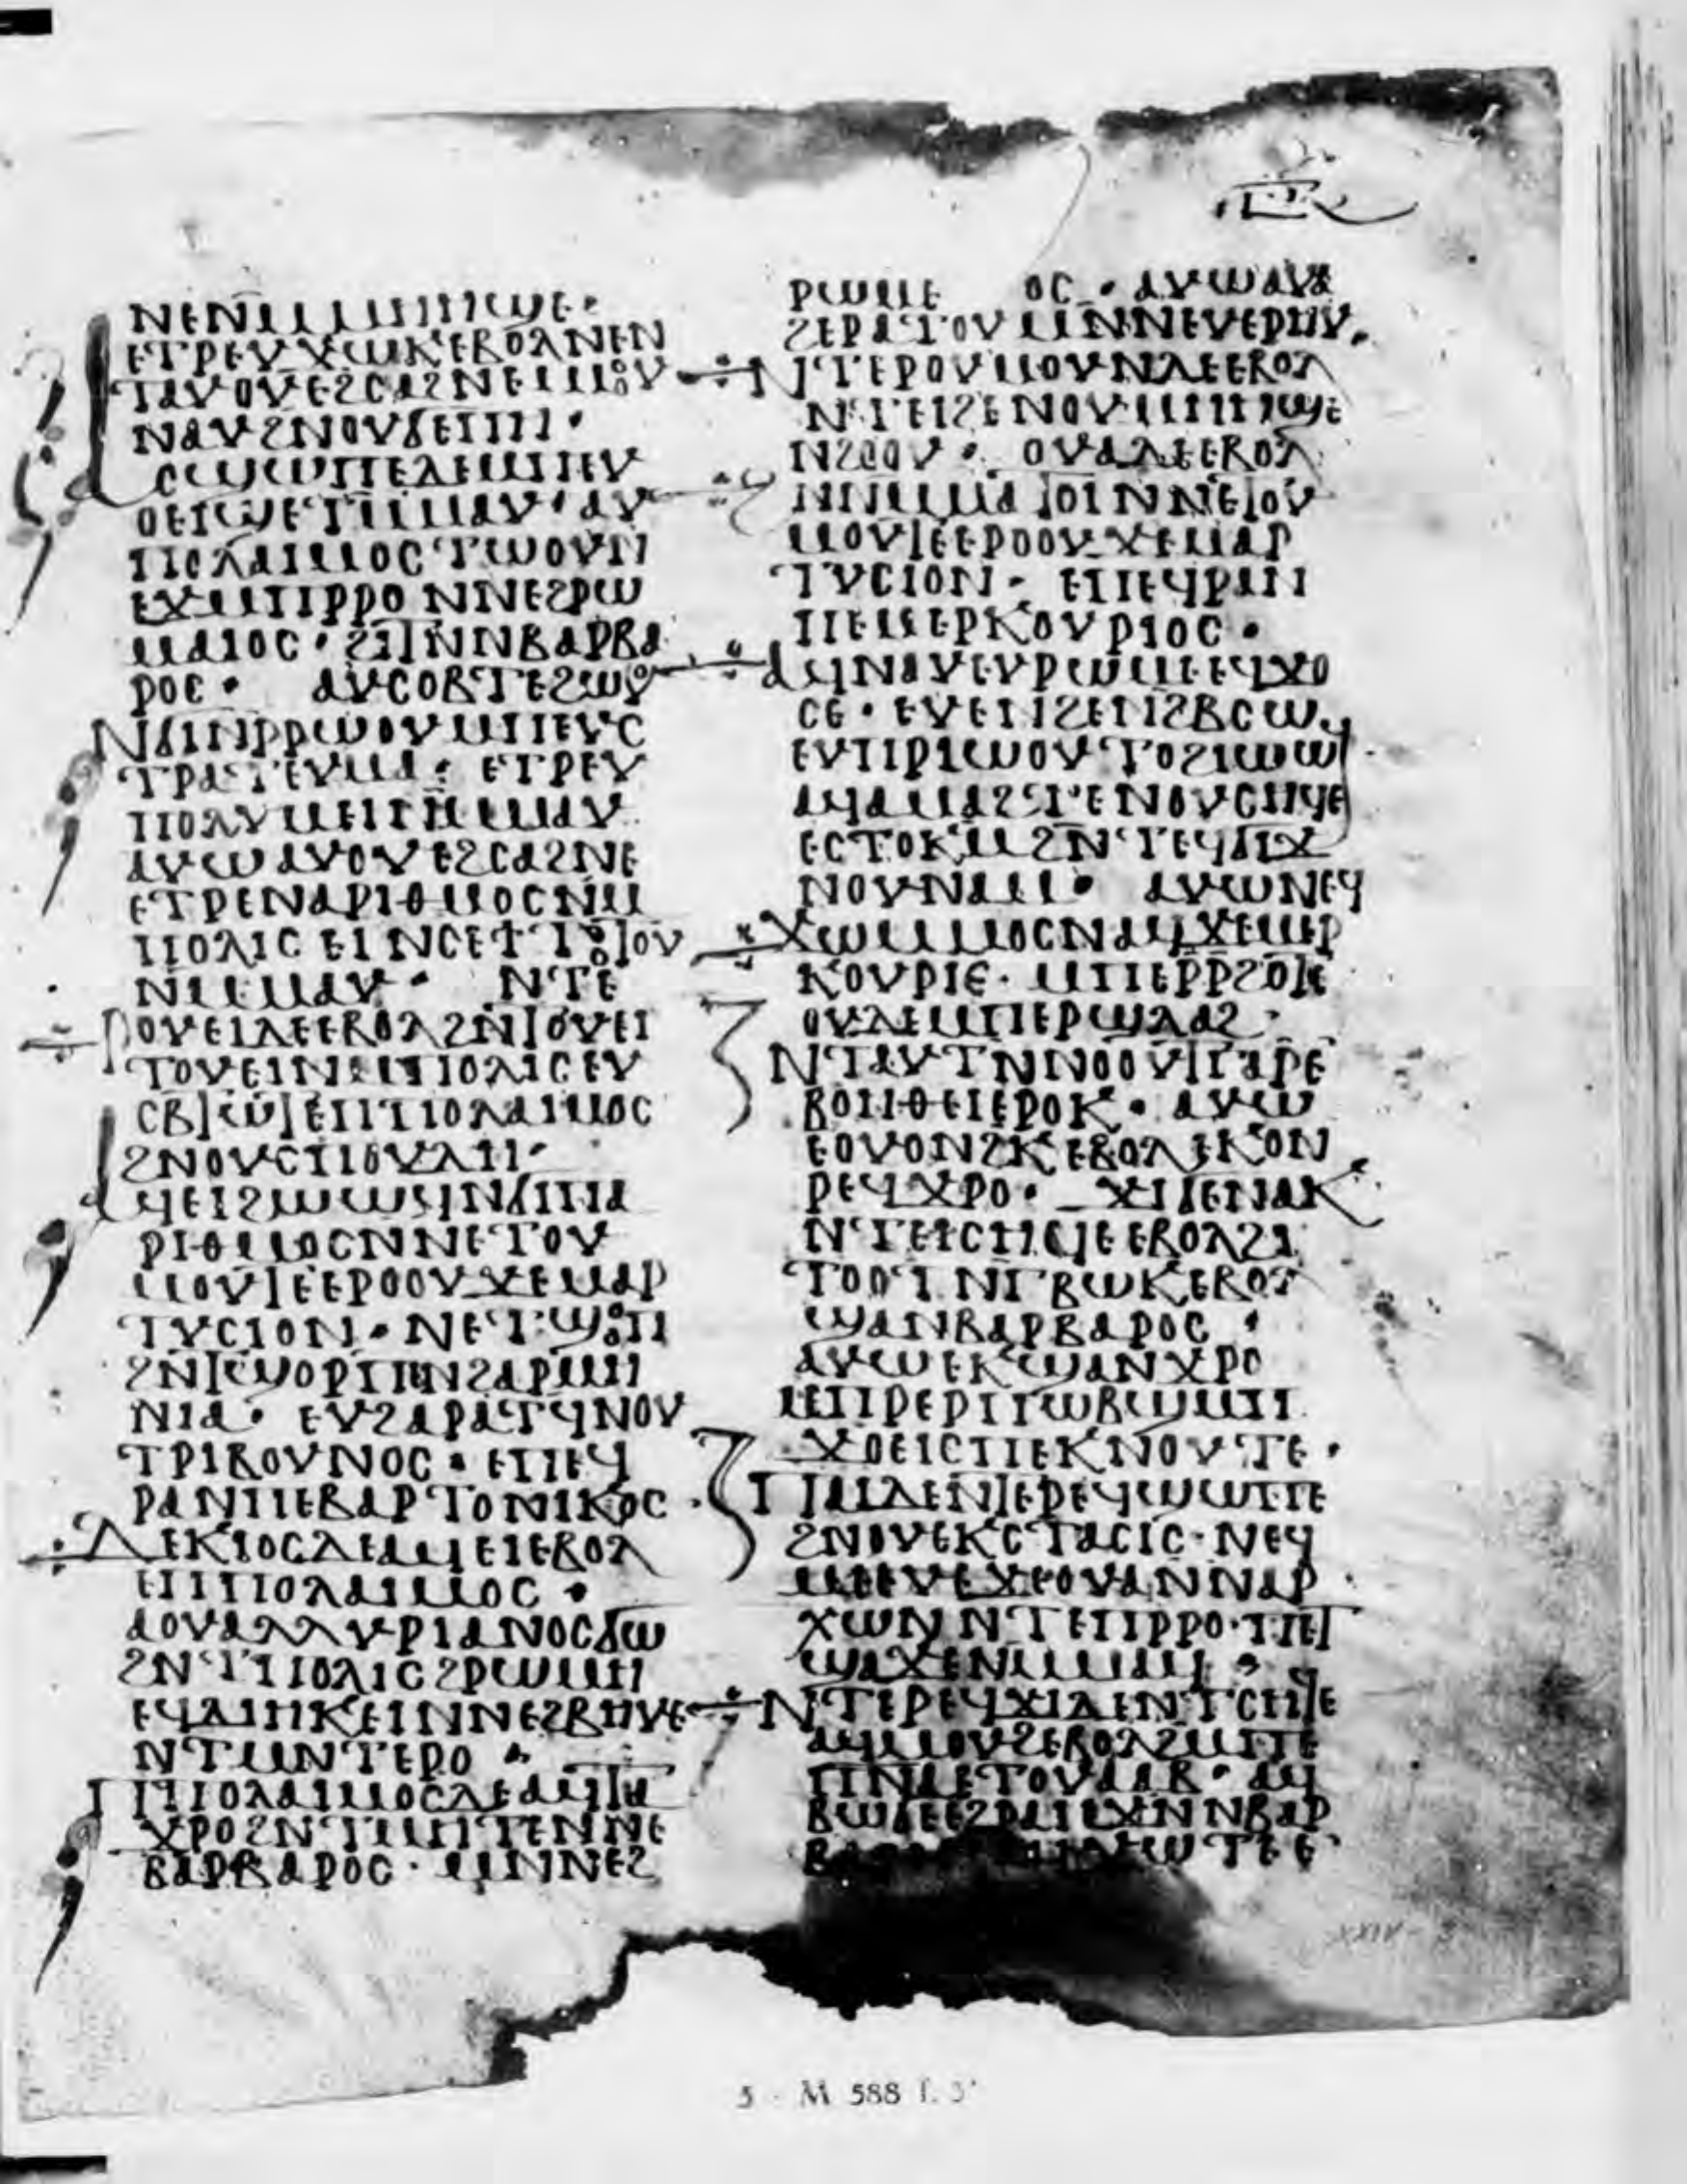 ⲛⲉⲛⲙⲙⲏⲏϣⲉ·
ⲉⲧⲣⲉⲩϫⲱⲕⲉⲃⲟⲗⲛⲉⲛ
ⲧⲁⲩⲟⲩⲉϩⲥⲁϩⲛⲉⲙⲙⲟⲩ
ⲛⲁⲩϩⲛⲟⲩϭⲉⲡⲏ·
ⲁⲥϣⲱⲡⲉⲇⲉⲙⲡⲉⲩ
ⲟⲉⲓϣⲉⲧⲙⲙⲁⲩ·ⲁⲩ
ⲡⲟⲗⲁⲓⲙⲟⲥⲧⲱⲟⲩⲛ
ⲉϫⲙⲡⲣⲣⲟⲛⲛⲉϩⲣⲱ
ⲙⲁⲓⲟⲥ·ϩⲓⲧⲛⲛⲃⲁⲣⲃⲁ
ⲣⲟⲥ· ⲁⲩⲥⲟⲃⲧⲉϩⲱⲟⲩ
ⲛϭⲓⲛⲣⲣⲱⲟⲩⲙⲡⲉⲩⲥ
ⲧⲣⲁⲧⲉⲩⲙⲁ· ⲉⲧⲣⲉⲩ
ⲡⲟⲗⲩⲙⲉⲓⲛⲙⲙⲁⲩ
ⲁⲩⲱⲁⲩⲟⲩⲉϩⲥⲁϩⲛⲉ
ⲉⲧⲣⲉⲛⲁⲣⲓⲑⲙⲟⲥⲛⲓⲙ
ⲡⲟⲗⲓⲥⲉⲓⲛⲥⲉϯⲧⲟⲟⲧⲟⲩ
ⲛⲙⲙⲁⲩ· ⲛⲧⲉ
ⲣⲟⲩⲉⲓⲇⲉⲉⲃⲟⲗϩⲛⲧⲟⲩⲉⲓ
ⲧⲟⲩⲉⲓⲛⲙⲡⲟⲗⲓⲥⲉⲩ
ⲥⲃⲧⲱⲧⲉⲡⲡⲟⲗⲁⲓⲙⲟⲥ
ϩⲛⲟⲩⲥⲡⲟⲩⲇⲏ·
ⲁϥⲉⲓϩⲱⲱϥⲛϭⲓⲡⲁ
ⲣⲓⲑⲙⲟⲥⲛⲛⲉⲧⲟⲩ
ⲙⲟⲩⲧⲉⲉⲣⲟⲟⲩϫⲉⲙⲁⲣ
ⲧⲩⲥⲓⲟⲛ·ⲛⲉⲧϣⲟⲟⲡ
ϩⲛⲧϣⲟⲣⲡⲛϩⲁⲣⲙⲏ
ⲛⲓⲁ· ⲉⲩϩⲁⲣⲁⲧϥⲛⲟⲩ
ⲧⲣⲓⲃⲟⲩⲛⲟⲥ·ⲉⲡⲉϥ
ⲣⲁⲛⲡⲉⲃⲁⲣⲧⲟⲛⲓⲕⲟⲥ·
ⲇⲉⲕⲓⲟⲥⲇⲉⲁϥⲉⲓⲉⲃⲟⲗ
ⲉⲡⲡⲟⲗⲁⲓⲙⲟⲥ·
ⲁⲟⲩⲁⲗⲗⲩⲣⲓⲁⲛⲟⲥϭⲱ
ϩⲛⲧⲡⲟⲗⲓⲥϩⲣⲱⲙⲏ
ⲉϥⲇⲓⲏⲕⲉⲓⲛⲛⲉϩⲃⲏⲩⲉ
ⲛⲧⲙⲛⲧⲉⲣⲟ·
ⲡⲡⲟⲗⲁⲓⲙⲟⲥⲇⲉⲁϥⲧⲁ
ϫⲣⲟϩⲛⲧⲙⲏⲧⲉⲛⲛⲉ
ⲃⲁⲣⲃⲁⲣⲟⲥ·ⲙⲛⲛⲉϩ
ⲣⲱⲙⲉ ⲟⲥ·ⲁⲩⲱⲁⲩⲁ
ϩⲉⲣⲁⲧⲟⲩⲙⲛⲛⲉⲩⲉⲣⲏⲩ·
ⲛⲧⲉⲣⲟⲩⲙⲟⲩⲛⲇⲉⲉⲃⲟⲗ
ⲛⲧⲉⲓϩⲉⲛⲟⲩⲙⲏⲏϣⲉ
ⲛϩⲟⲟⲩ· ⲟⲩⲁⲇⲉⲉⲃⲟⲗ
ϩⲛⲛⲙⲙⲁⲧⲟⲓⲛⲛⲉⲧⲟⲩ
ⲙⲟⲩⲧⲉⲉⲣⲟⲟⲩϫⲉⲙⲁⲣ
ⲧⲩⲥⲓⲟⲛ· ⲉⲡⲉϥⲣⲁⲛ
ⲡⲉⲙⲉⲣⲕⲟⲩⲣⲓⲟⲥ·
ⲁϥⲛⲁⲩⲉⲩⲣⲱⲙⲉⲉϥϫⲟ
ⲥⲉ·ⲉⲩⲉⲓϩⲉⲛϩⲃⲥⲱ
ⲉⲩⲡⲣⲓⲱⲟⲩⲧⲟϩⲓⲱⲱϥ
ⲁϥⲁⲙⲁϩⲧⲉⲛⲟⲩⲥⲏϥⲉ
ⲉⲥⲧⲟⲕⲙϩⲛⲧⲉϥϭⲓϫ
ⲛⲟⲩⲛⲁⲙ· ⲁⲩⲱⲛⲉϥ
ϫⲱⲙⲙⲟⲥⲛⲁϥϫⲉⲙⲉⲣ
ⲕⲟⲩⲣⲓⲉ·ⲙⲡⲉⲣⲣϩⲟⲧⲉ
ⲟⲩⲇⲉⲙⲡⲉⲣϣⲗⲁϩ·
ⲛⲧⲁⲩⲧⲛⲛⲟⲟⲩⲧⲅⲁⲣⲉ
ⲃⲟⲏⲑⲉⲓⲉⲣⲟⲕ·ⲁⲩⲱ
ⲉⲟⲩⲟⲛϩⲕⲉⲃⲟⲗⲛⲕⲟⲛ
ⲣⲉϥϫⲣⲟ· ϫⲓϭⲉⲛⲁⲕ
ⲛⲧⲉⲓⲥⲏϥⲉⲉⲃⲟⲗϩⲓ
ⲧⲟⲟⲧⲛⲅⲃⲱⲕⲉⲃⲟⲗ
ϣⲁⲛⲃⲁⲣⲃⲁⲣⲟⲥ·
ⲁⲩⲱⲉⲕϣⲁⲛϫⲣⲟ
ⲙⲡⲣⲉⲣⲡⲱⲃϣⲙⲡ
ϫⲟⲉⲓⲥⲡⲉⲕⲛⲟⲩⲧⲉ·
ⲡⲁⲓⲇⲉⲛⲧⲉⲣⲉϥϣⲱⲡⲉ
ϩⲛⲟⲩⲉⲕⲥⲧⲁⲥⲓⲥ·ⲛⲉϥ
ⲙⲉⲉⲩⲉϫⲉⲟⲩⲁⲛⲛⲁⲣ
ⲭⲱⲛⲛⲧⲉⲡⲣⲣⲟ·ⲡⲉⲧ
ϣⲁϫⲉⲛⲙⲙⲁϥ·
ⲛⲧⲉⲣⲉϥϫⲓⲇⲉⲛⲧⲥⲏϥⲉ
ⲁϥⲙⲟⲩϩⲉⲃⲟⲗϩⲙⲡⲉ
ⲡⲛⲁⲉⲧⲟⲩⲁⲁⲃ·ⲁϥ
ⲃⲱϭⲉⲉϩⲣⲁⲓⲉϫⲛⲛⲃⲁⲣ
XXIV-5
5 - M 588 f. 3